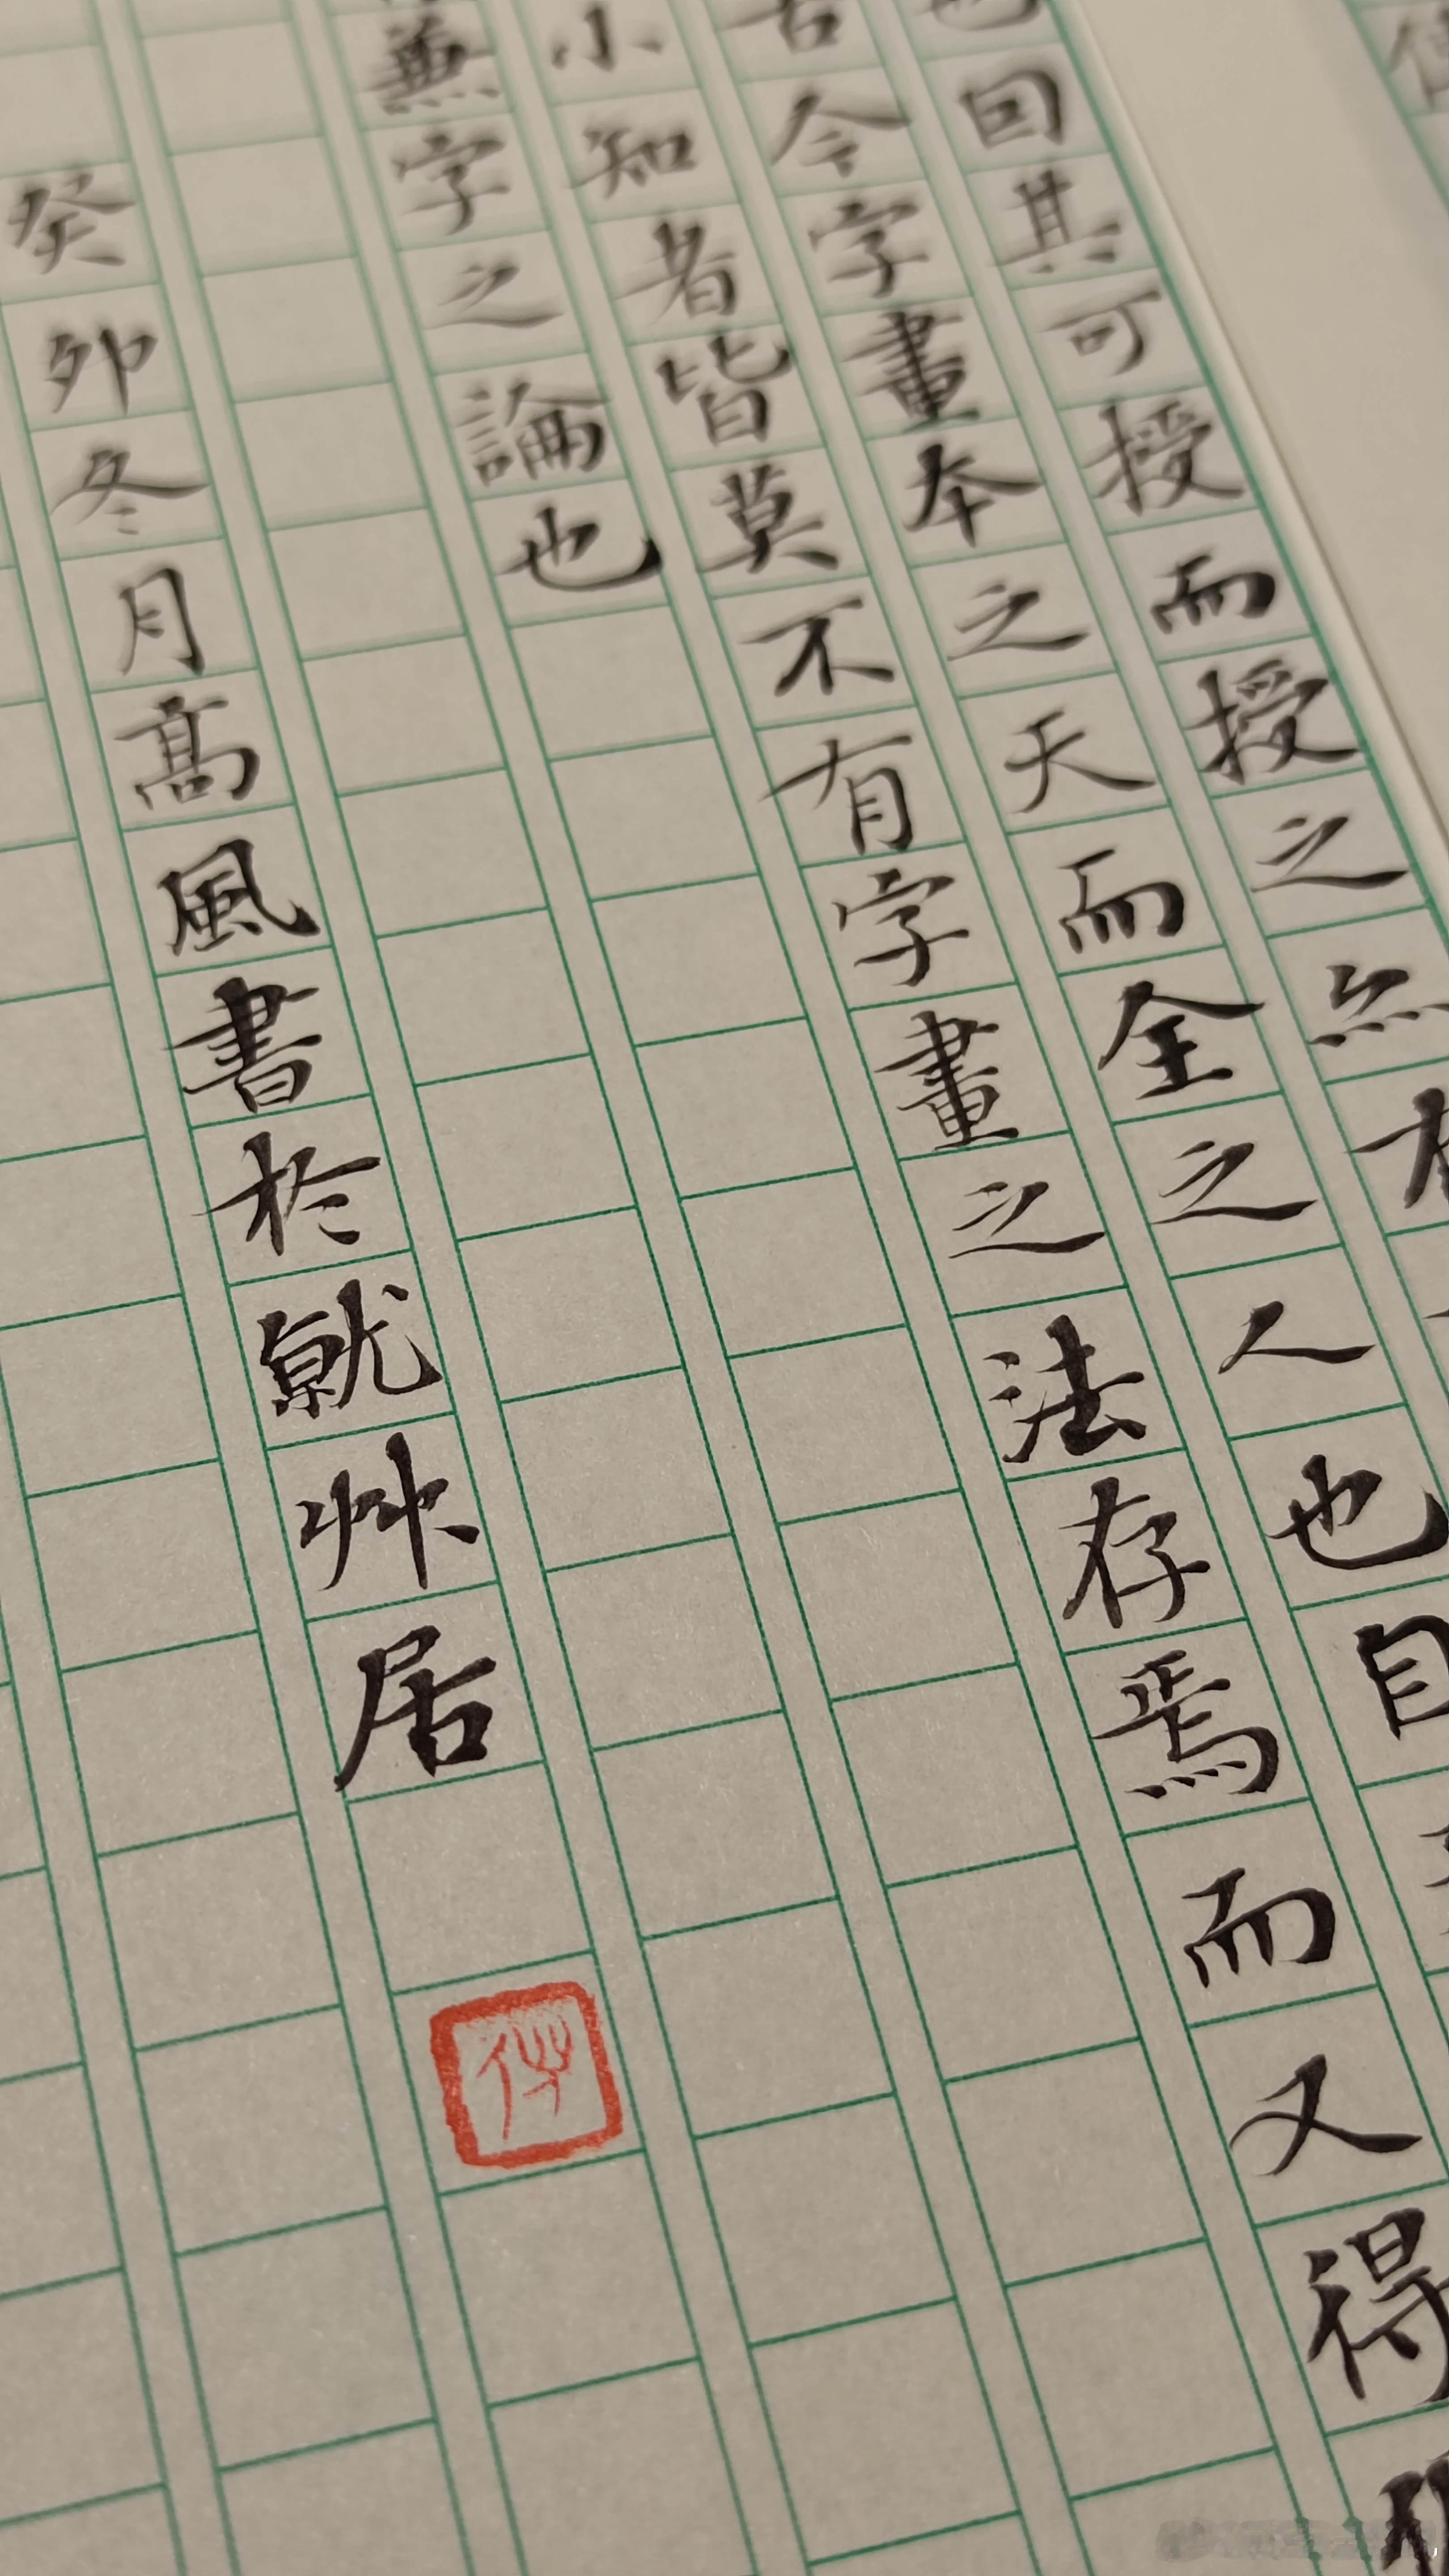 也回其可授而授之亦
古今字畫本之天而全之人也自
小知者皆莫不有字畫之法存焉而又得
兼字之論也
癸卯冬月高風書於就艸居